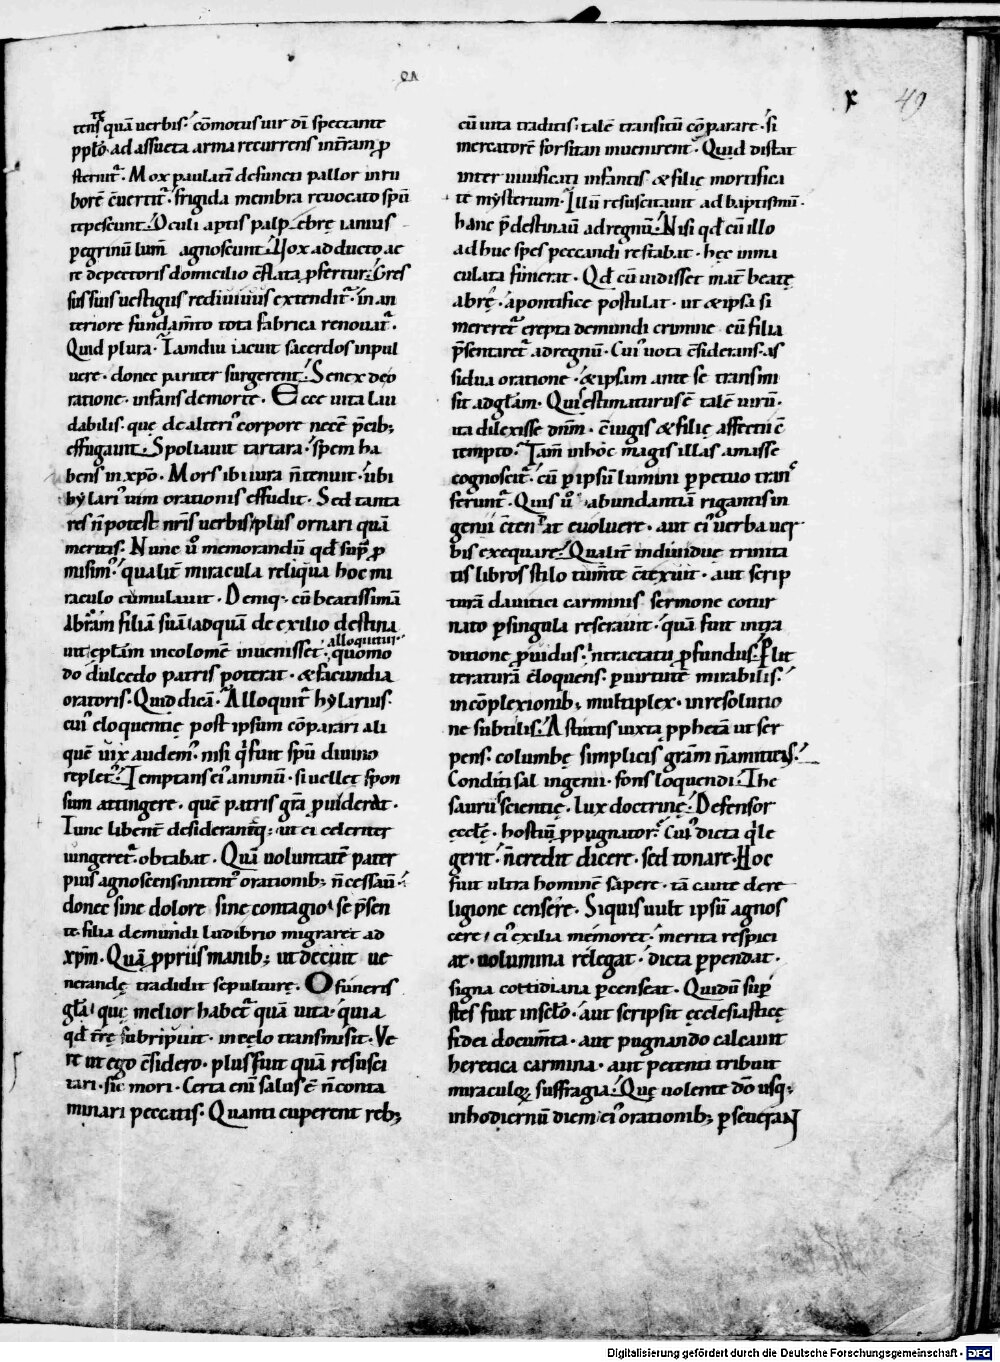 x 49
tens quā uerbis. cōmotus uir dī spectante
pplo. ad assueta arma recurrens in terram p
sternit̄. Mox paulatī defuncti pallor in ru
borē c̄uertit̄. frigida membra reuocato spū
tepescunt. Oculi aptis palpebrę ianuis
pegrinū lum̄ agnoscunt. Vox adducto ae
re depectoris domicilio c̄flata pfertur. Gres
sus suis uestigiis rediuiuus extendit̄. in an
teriore fundam̄to tota fabrica renouat̄.
Quid plura. Tamdiu iacuit sacerdos inpul
uere. donec pariter surgerent. Senex deo
ratione. infans demorte. Ecce uita lau
dabilis. quę de alteri᾽ corpore necē p̄cib;
effugauit. Spoliauit tartara. spem ha
bens in xp̄o. Mors ibi iura n̄ tenuit. ubi
hylari᾽ uim orationis effudit. Sed tanta
res n̄ potest nr̄is uerbis plus ornari quā
meritis. Nunc u᾽o memorandū qd᾽ sup᾽ p
misim᾽. qualit̄ miracula reliqua hoc mi
raculo cumulauit. Deniq; cū beatissimā
Abram filiā suā adquā de exilio destina
uit ep̄tam incolomē inuenisset. alloquitur quomo
do dulcedo patris poterat. & facundia
oratoris. Quid dicā. Alloquit̄ hylarius.
cui᾽ eloquentię post ipsum cōparari ali
quē uix audem᾽. nisi q᾽ fuit spū diuino
replet᾽. Temptans ei᾽ animū. si uellet spon
sum attingere. quē patris gr̄a puiderat.
Tunc libent̄ desideranti q; ut ei celeriter
iungeret̄ obtabat. Quā uoluntatē pater
pius agnoscens. intent᾽ orationib; n̄ cessau᾽.
donec sine dolore sine contagio se p̄sen
te filia demundi ludibrio migraret ad
xp̄m. Quā ppriis manib; ut decuit ue
nerandę tradidit sepulturę. O funeris
gl̄a. quę melior habet̄ quā uita. quia
qd᾽ t̄rę subripuit. incęlo transmisit. Ve
re ut ego c̄sidero. plus fuit quā resusci
tari. sic mori. Certa eni᾽ salus ē n̄ conta
minari peccatis. Quanti cuperent reb;
cū uita traditis. talē transitū cōparare. si
mercatorē forsitan inuenirent. Quid distat
inter uiuificati infantis & filię mortifica
te mysterium. Illū resuscitauit ad baptismū.
hanc p̄destinauit ad regnū. Nisi qd᾽ cū illo
ad huc spes peccandi restabat. hęc inma
culata funerat. Qd᾽ cū uidisset mat̄ beatę
abrę. apontifice postulat. ut & ipsa si
mereret̄ erepta demundi crimine cū filia
p̄sentaret̄ ad regnū. Cui᾽ uota c̄siderans. as
sidua oratione. & ipsam ante se transmi
sit adgl̄am. Qui᾽ estimaturus ē talē uirū.
ita dilexisse dn̄m. c̄iugis & filię affectū c̄
tempto. Tam̄ inhoc magis illas amasse
cognoscit̄. cū p ipsū lumini ppetuo trans
ferunt̄. Quis u᾽o abundantiā rigantis in
genii c̄tendat euoluere. aut ei᾽ uerba uer
bis exequare. Qualit̄ indiuiduę trinita
tis libros stilo tum̄te c̄texuit. aut scrip
turā dauitici carminis sermone cotur
nato p singula reserauit. quā fuit in tra
ditione puidus. intractatu pfundus. p lit
teraturā eloquens. puirtutē mirabilis.
in cōplexionib; multiplex. inresolutio
ne subtilis. Astutus iuxta pphetā ut ser
pens. columbę simplicis gram n̄ amittens.
Conditi sal ingenii. fons loquendi. The
saurus scientię. lux doctrinę. Defensor
ęccl̄ę. hostiū ppugnator. Cui᾽ dicta q᾽ le
gerit. n̄ credit dicere. sed tonare. Hoc
fuit ultra hominē sapere. tā caute dere
ligione censere. Siquis uult ipsū agnos
cere. ei᾽ exilia memoret. merita respici
at. uolumina relegat. dicta ppendat.
signa cottidiana pcenseat. Quidū sup
stes fuit insęclo. aut scripsit ęcclesiasticę
fidei docum̄ta. aut pugnando calcauit
heretica carmina. aut petenti tribuit
miraculoꝝ suffragia. Quę uolente dō usq;
inhodiernū diem ei᾽ orationib; pseueraN